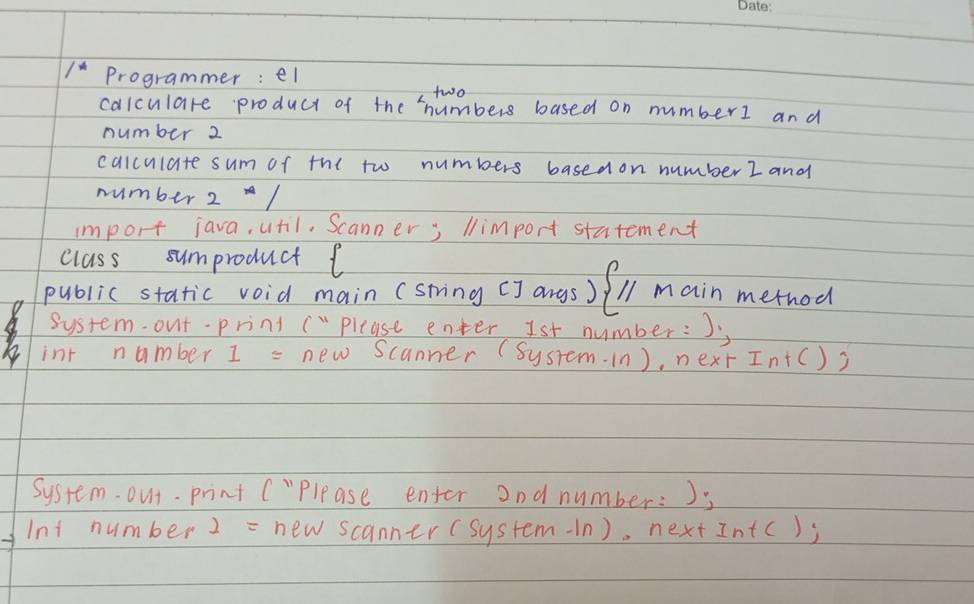 Date:
/* Programmer : el
calculate product of the two numbers based on number1 and
number 2
calculate sum of the two numbers based on number 1 and
number 2 */
import java.util.Scanner; //import statement
class sumproduct {
public static void main (String [] args) { // main method
System.out.print ("Please enter 1st number: );
int number 1 = new Scanner (System.in). next Int();
System.out.print ("Please enter 2nd number: );
Int number 2 = new scanner (System.In). next Int( );